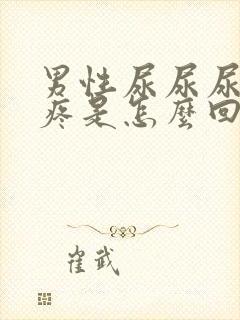 男性尿尿尿
疼是怎麼回
崔武